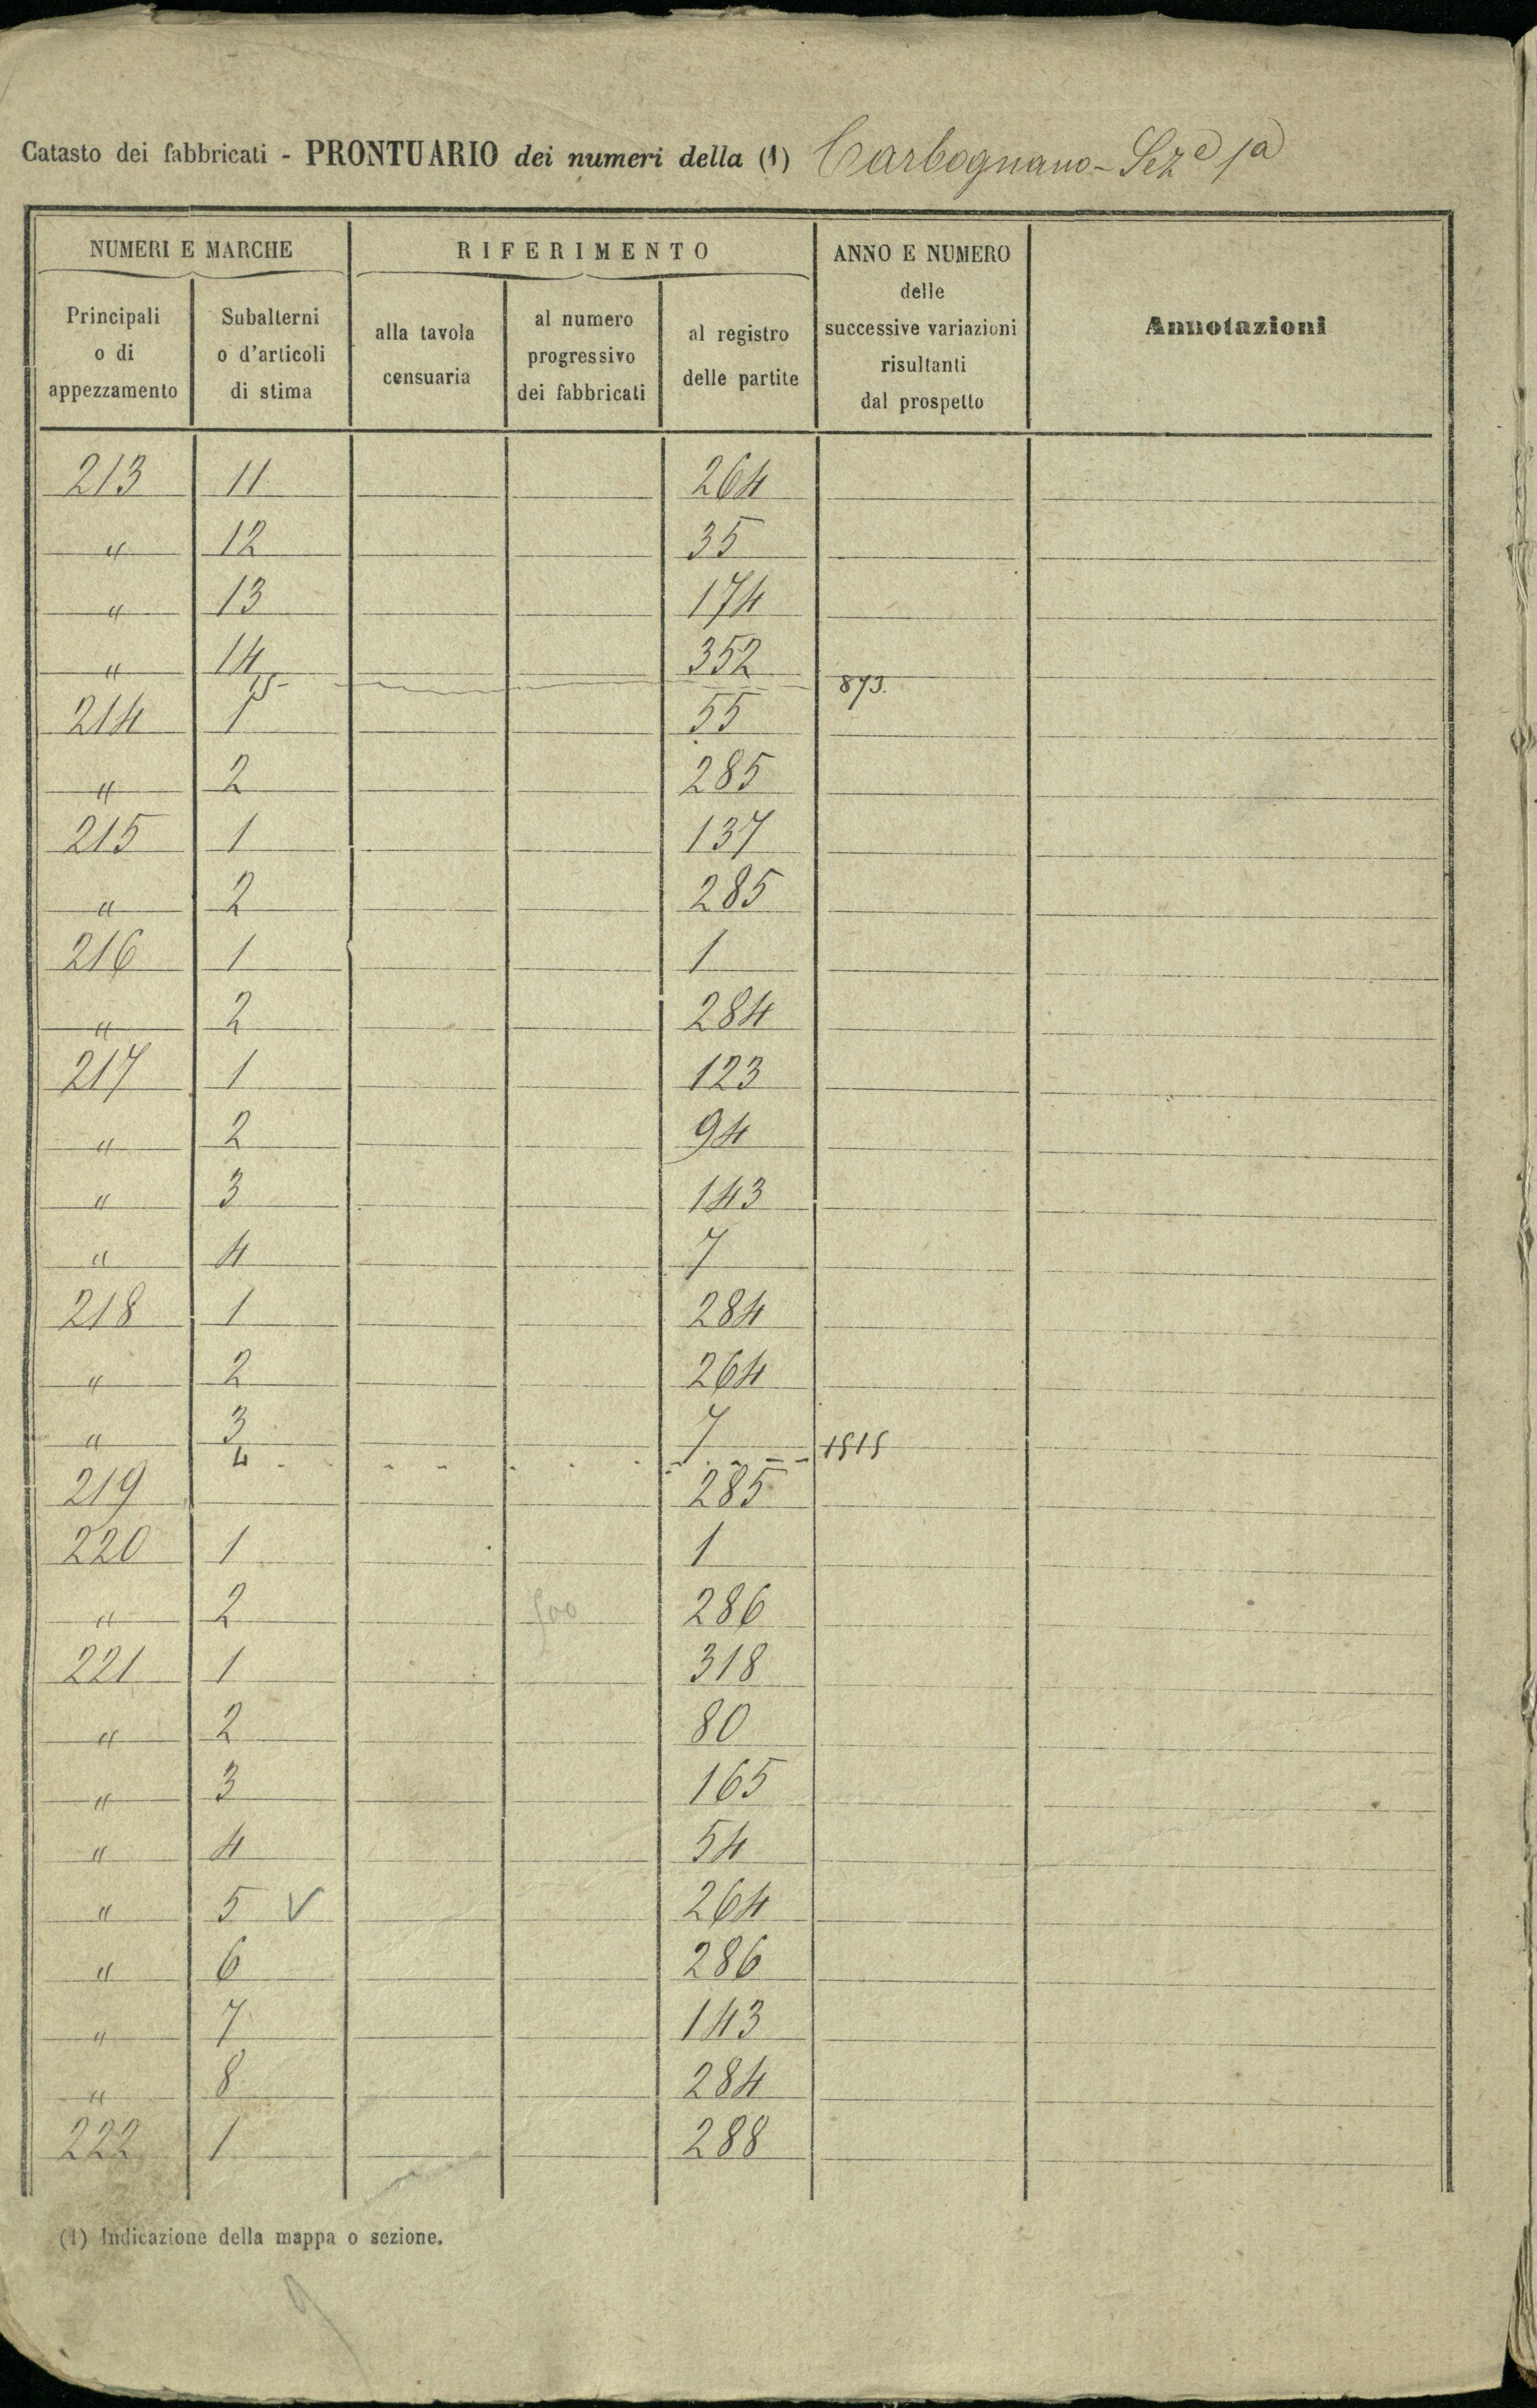 Catasto dei fabbricati - PRONTUARIO dei numeri della (1) Carbognano - Sez.e 1a
NUMERI E MARCHE RIFERIMENTO ANNO E NUMERO delle successive variazioni risultanti dal prospetto Annotazioni
Principali o di appezzamento Subalterni o d'articoli di stima alla tavola censuaria al numero progressivo dei fabbricati al registro delle partite
213 11 264
" 12 35
" 13 174
" 14 352
15 873.
214 1 55
" 2 285
215 1 137
" 2 285
216 1 1
" 2 284
217 1 123
" 2 94
" 3 143
" 4 7
218 1 284
" 2 264
" 3 7
4 - - - - - - - - - 1515
219 285
220 1 1
" 2 286
221 1 318
" 2 80
" 3 165
" 4 54
" 5 V 264
" 6 286
" 7 143
" 8 284
222 1 288
(1) Indicazione della mappa o sezione.
9